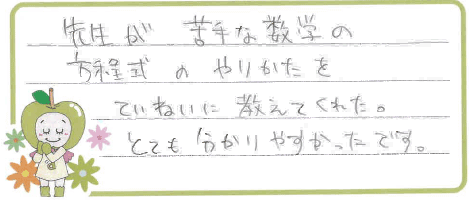 先生が 苦手な数学の
方程式のやりかたを
ていねいに教えてくれた。
とても分かりやすかったです。